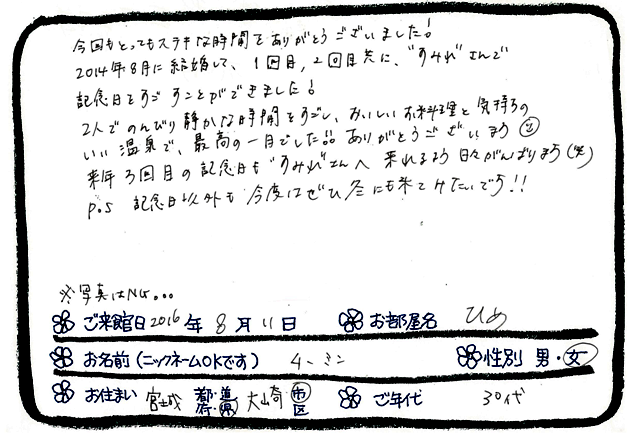 今回もとってもステキな時間をありがとうございました!
2014年8月に結婚して、1回目,2回目共に、"すみれ"さんで
記念日をすごすことができました!
2人でのんびり静かな時間をすごし、おいしいお料理と気持ちの
いい温泉で、最高の一日でした!! ありがとうございます
来年3回目の記念日も"すみれ"さんへ来れるよう日々がんばります(笑)
P.S 記念日以外も今度はぜひ冬にも来てみたいです!!
※写真はNG...
ご来館日 2016年 8月 11日 お部屋名 ひめ
お名前(ニックネームOKです) 性別 男・女
お住まい 宮城 都・道・府・県 大崎 市 区 ご年代 30代